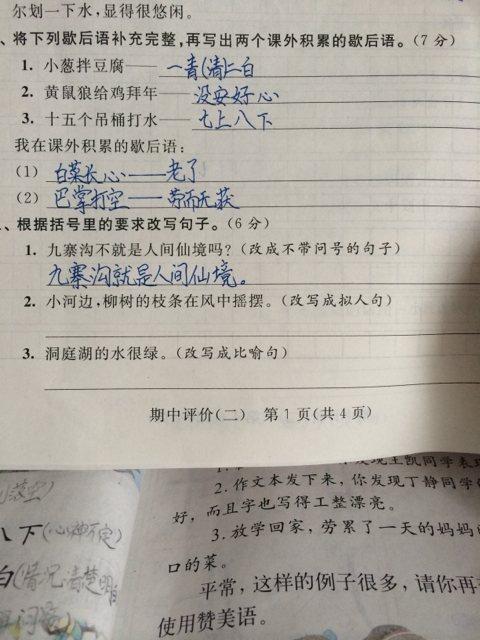 尔划一下水,显得很悠闲。
、将下列歇后语补充完整,再写出两个课外积累的歇后语。(7分)
1. 小葱拌豆腐—— 一青(清)二白
2. 黄鼠狼给鸡拜年—— 没安好心
3. 十五个吊桶打水—— 七上八下
我在课外积累的歇后语:
(1) 白菜长心——老了
(2) 巴掌打空——劳而无获
、根据括号里的要求改写句子。(6分)
1. 九寨沟不就是人间仙境吗?(改成不带问号的句子)
九寨沟就是人间仙境。
2. 小河边,柳树的枝条在风中摇摆。(改写成拟人句)
3. 洞庭湖的水很绿。(改写成比喻句)
期中评价(二) 第1页(共4页)
发现王凯同学表现
2. 作文本发下来,你发现丁静同学的
好,而且字也写得工整漂亮。
八下(心神不定)
3. 放学回家,劳累了一天的妈妈
口的菜。
白(情况清楚明白
平常,这样的例子很多,请你再
使用赞美语。